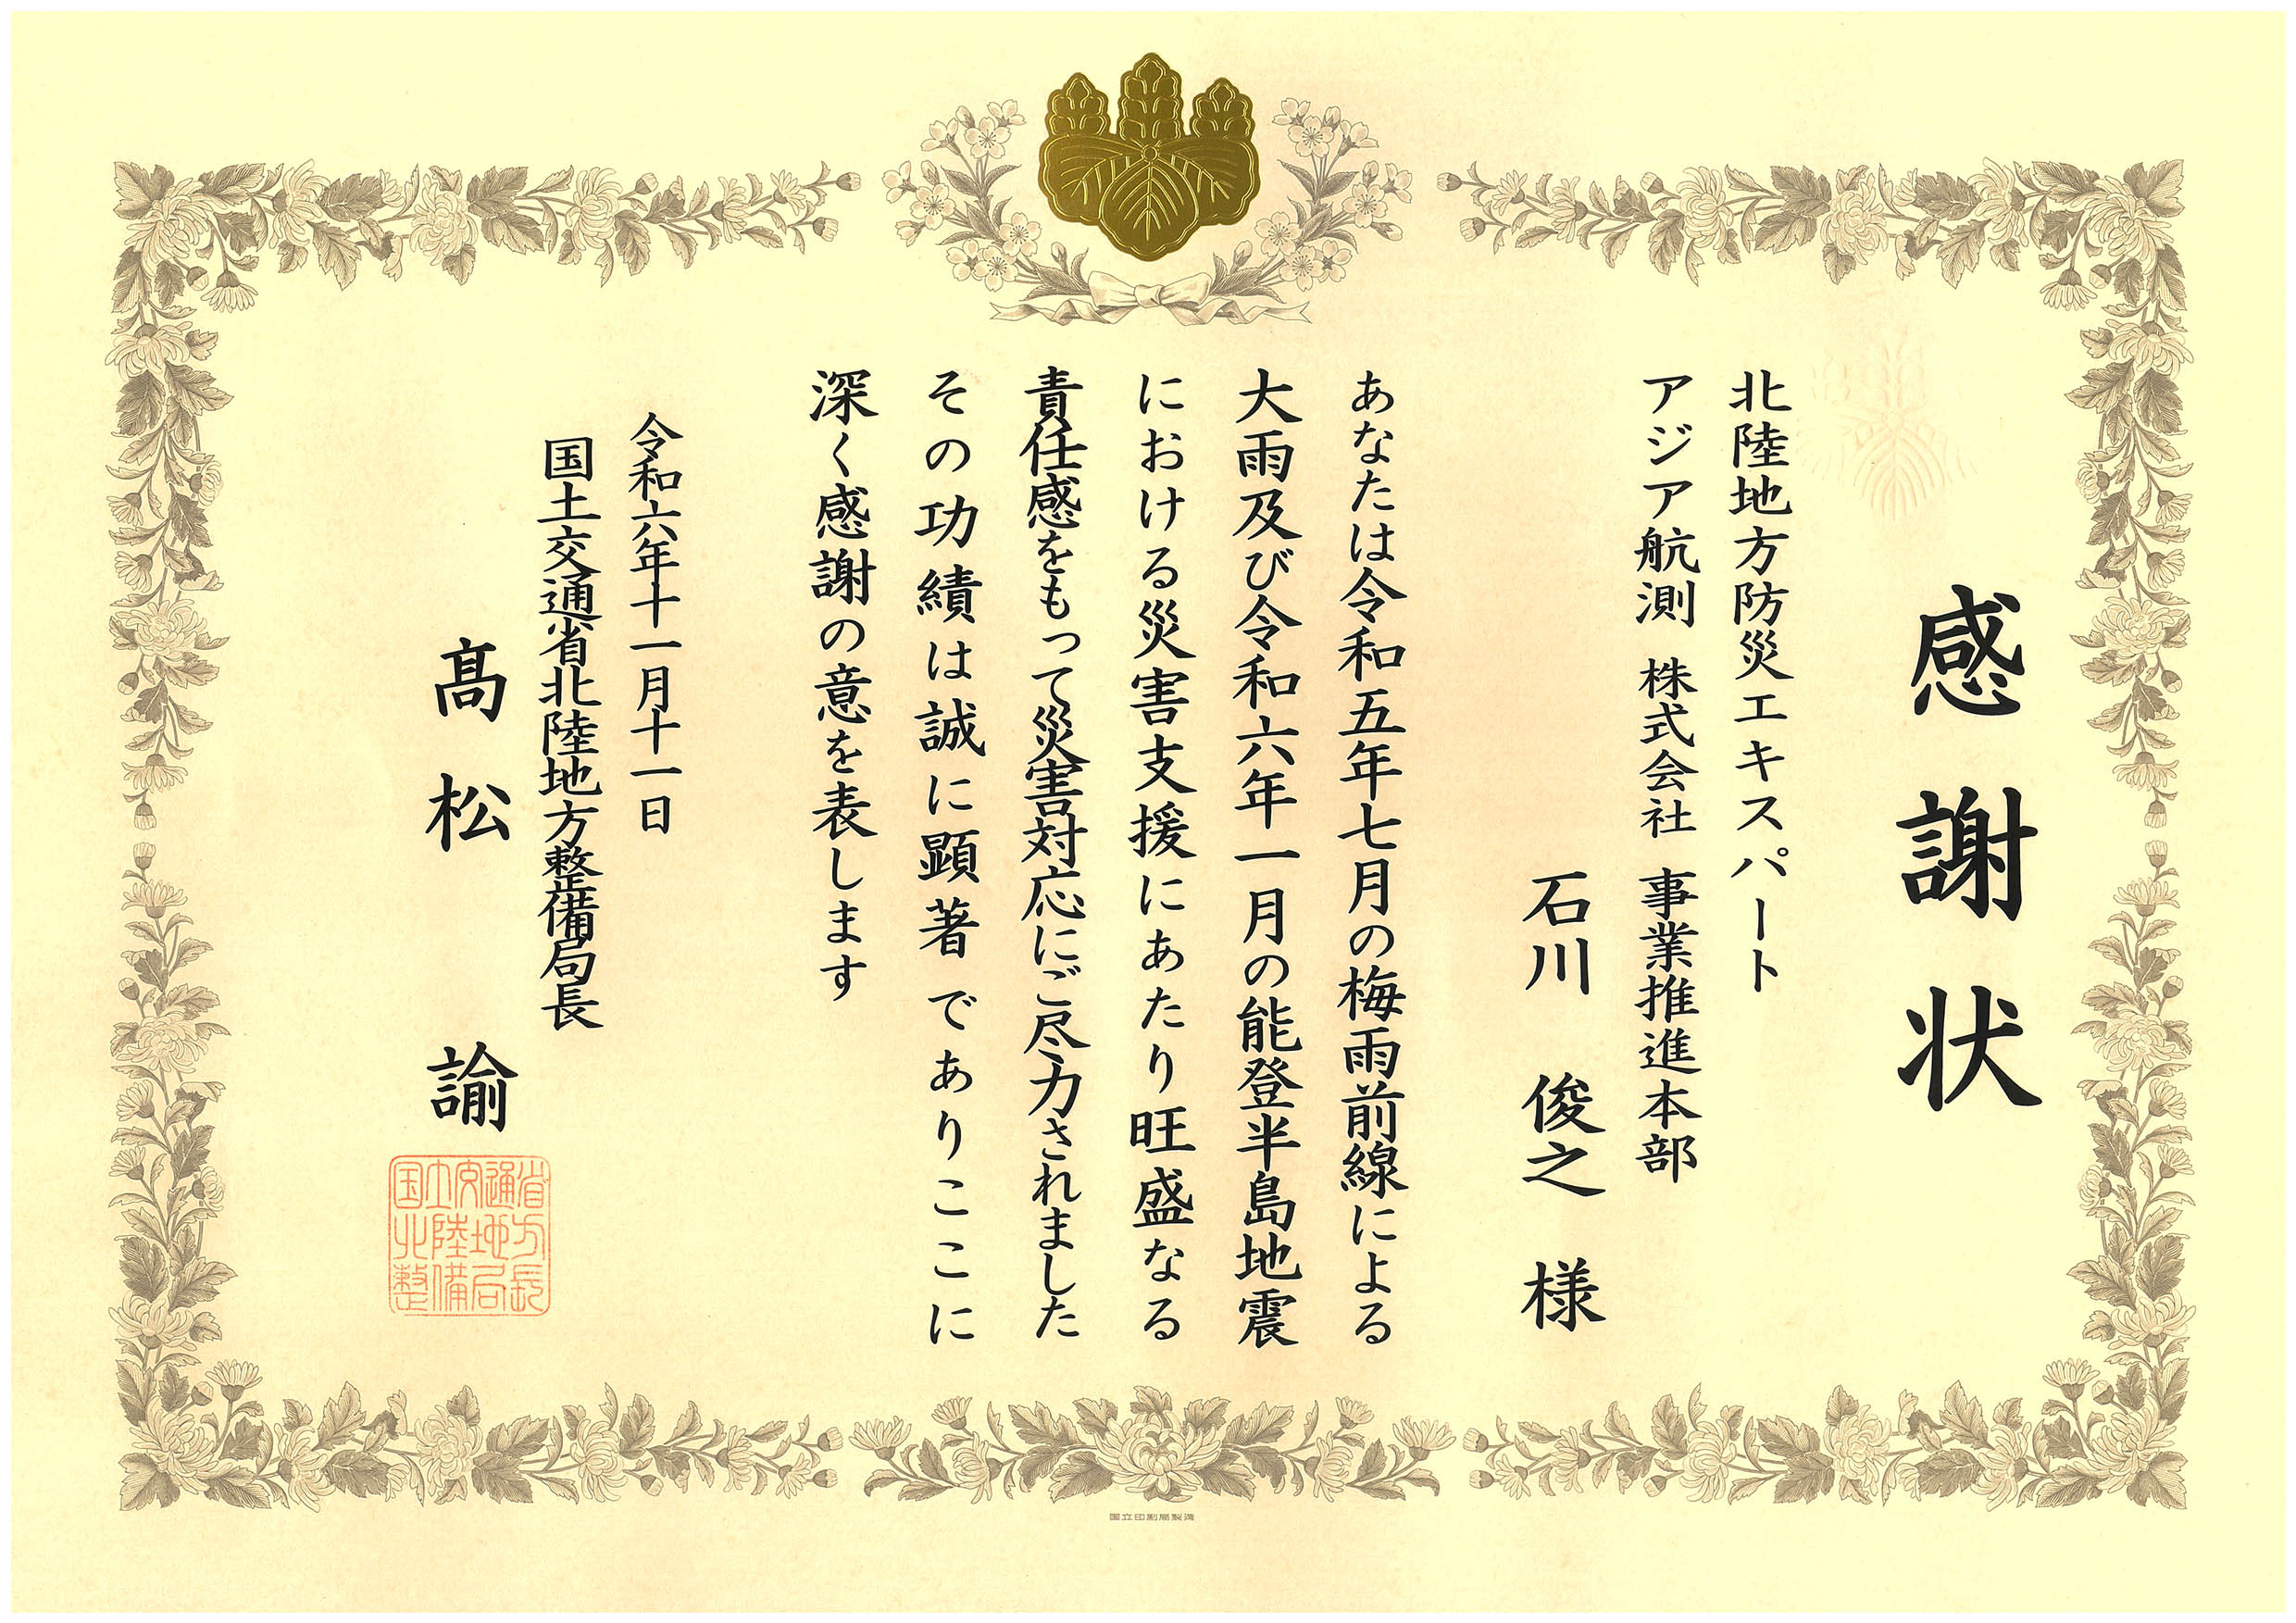 感謝状
北陸地方防災エキスパート
アジア航測 株式会社 事業推進本部
石川 俊之 様
あなたは令和五年七月の梅雨前線による
大雨及び令和六年一月の能登半島地震
における災害支援にあたり旺盛なる
責任感をもって災害対応にご尽力されました
その功績は誠に顕著でありここに
深く感謝の意を表します
令和六年十一月十一日
国土交通省北陸地方整備局長
髙松 諭
国土交通省
北陸地方
整備局長
国立印刷局製造